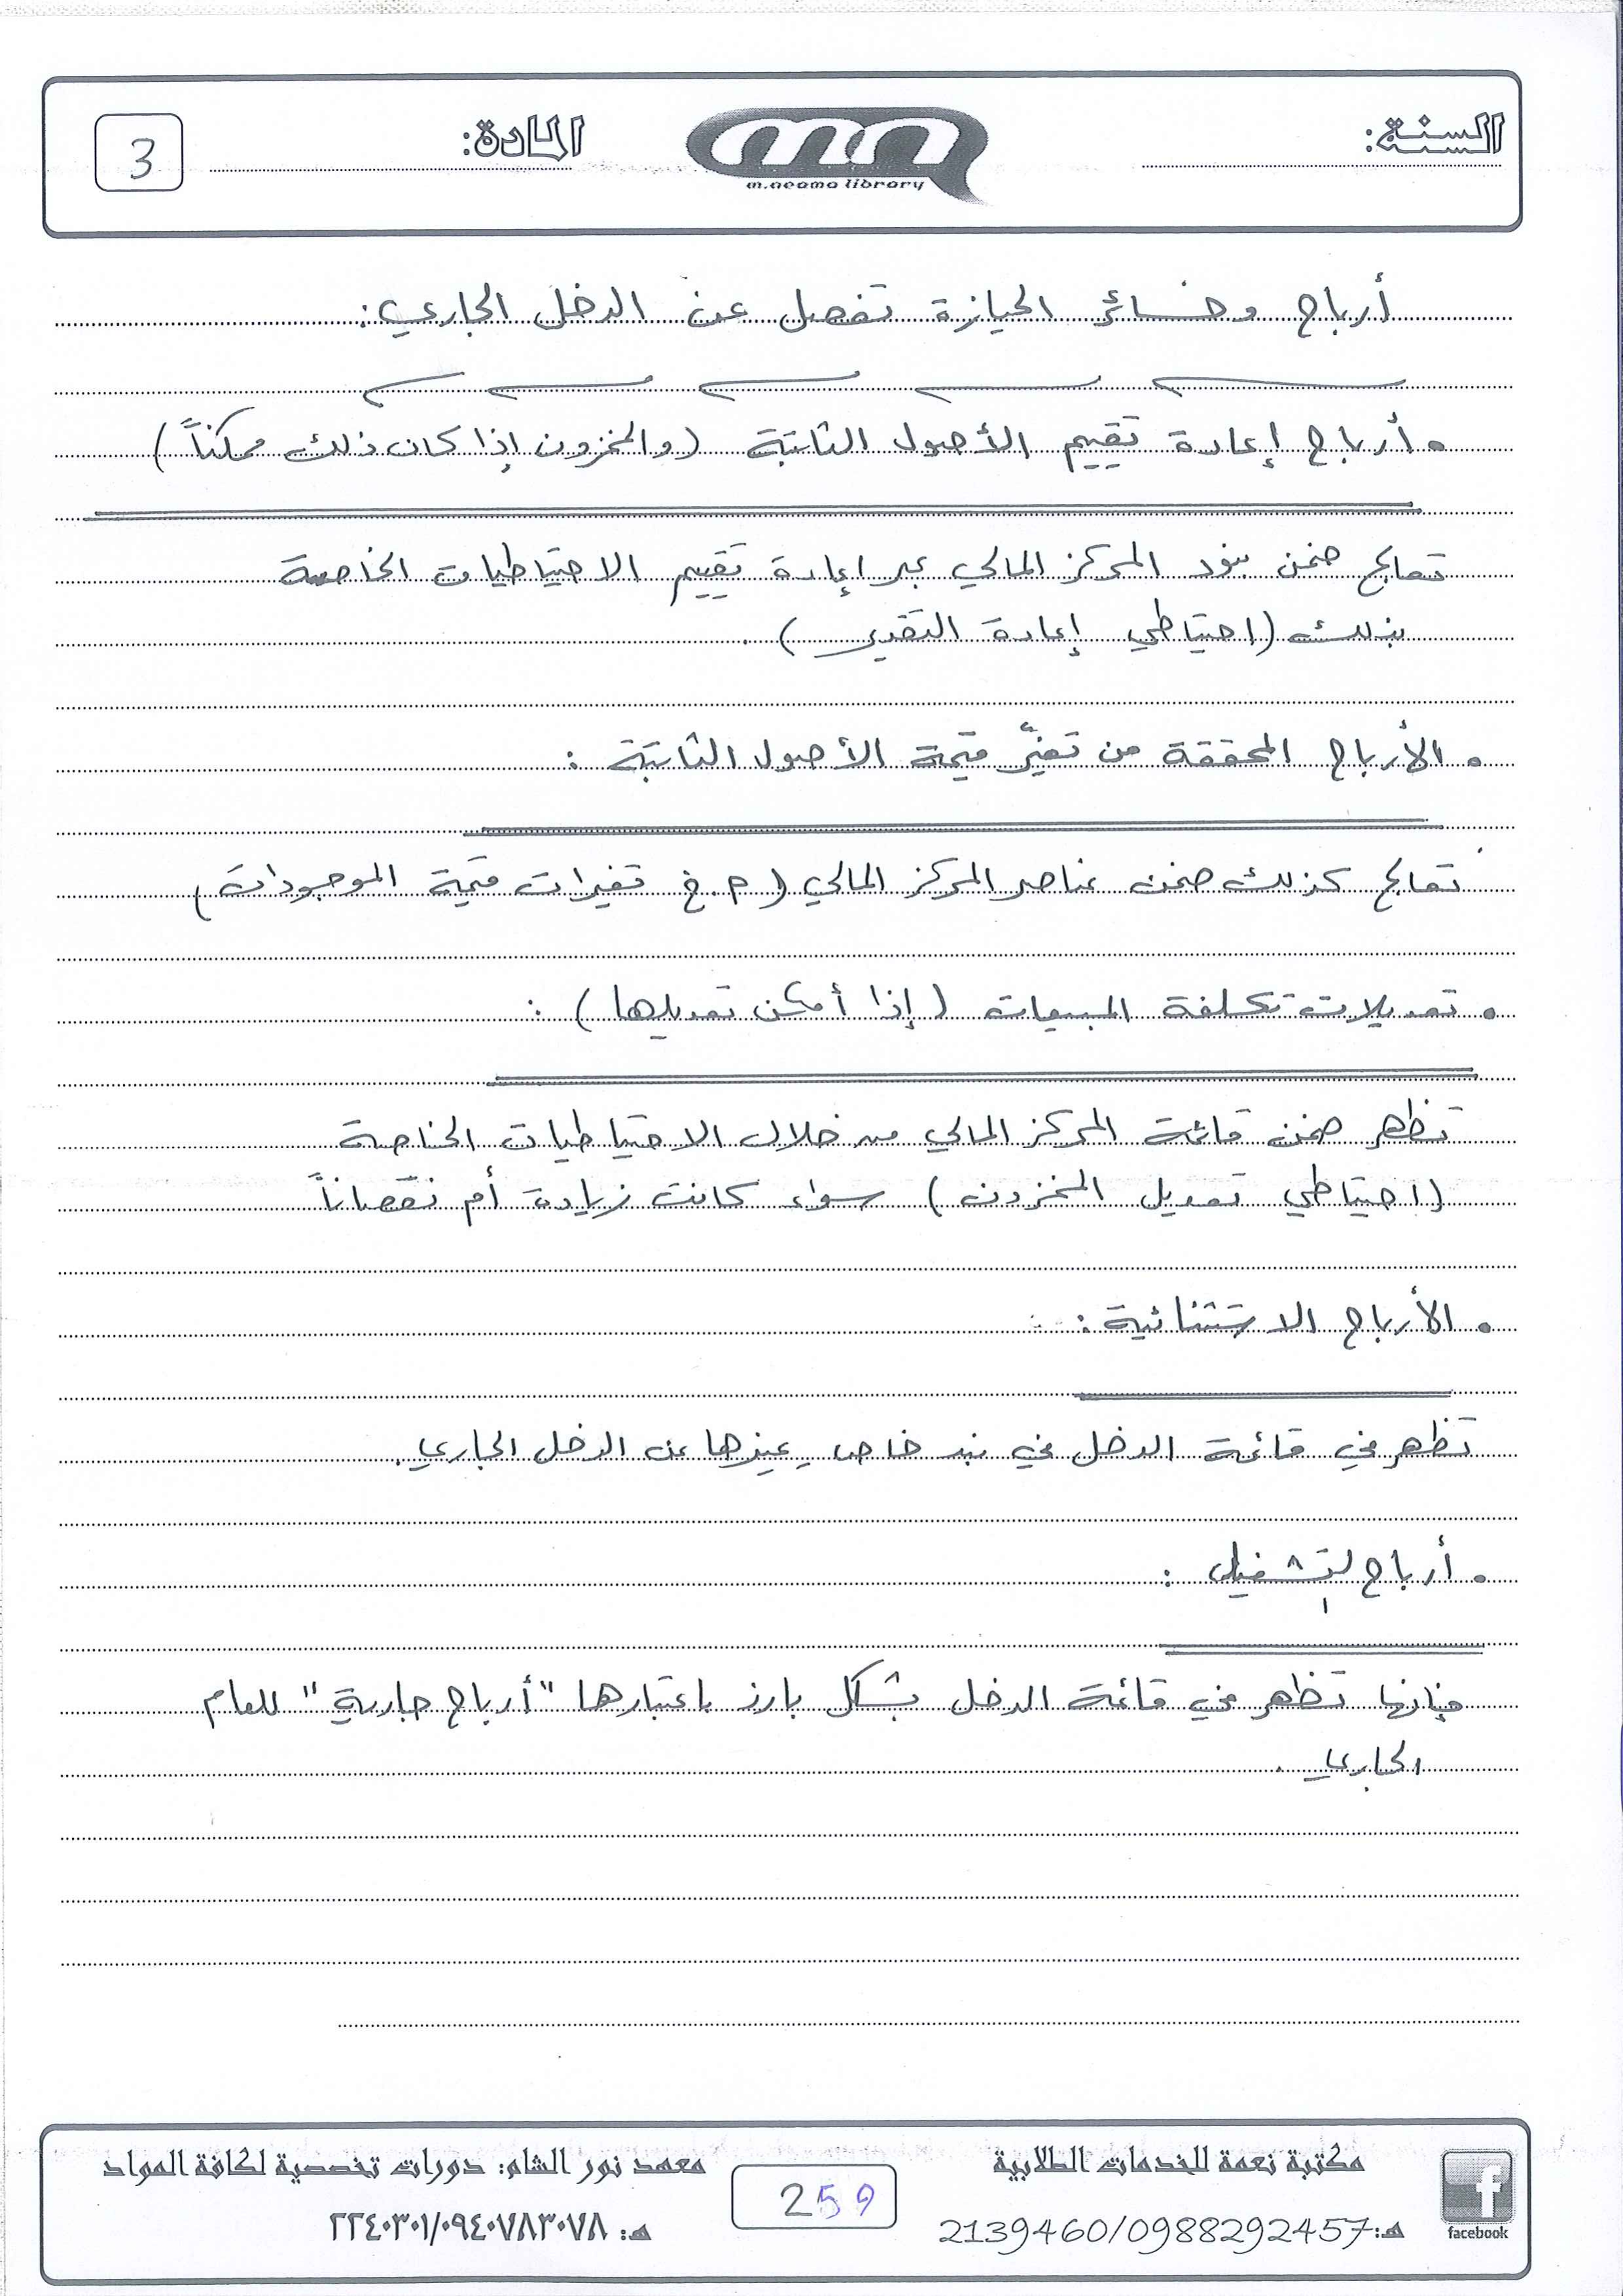 السنة:
m.neama library
المادة:
3
أرباح وخسائر الحيازة تفصل عن الدخل الجاري:
• أرباح إعادة تقييم الأصول الثابتة (والمخزون إذا كان ذلك ممكناً)
تعالج ضمن بنود المركز المالي عبر إعادة تقييم الاحتياطيات الخاصة
بذلك (احتياطي إعادة التقدير).
• الأرباح المحققة من تغيّر قيمة الأصول الثابتة:
تعالج كذلك ضمن عناصر المركز المالي (م.خ تغيرات قيمة الموجودات)
• تعديلات تكلفة المبيعات (إذا أمكن تعديلها):
تظهر ضمن قائمة المركز المالي من خلال الاحتياطيات الخاصة
(احتياطي تعديل المخزون) سواء كانت زيادة أم نقصاناً
• الأرباح الاستثنائية:
تظهر في قائمة الدخل في بند خاص يميزها عن الدخل الجاري.
• أرباح التشغيل:
فإنها تظهر في قائمة الدخل بشكل بارز باعتبارها "أرباح جارية" للعام
الجاري.
مكتبة نعمة للخدمات الطلابية
هـ: 2139460/0988292457
facebook
259
معهد نور الشام: دورات تخصصية لكافة المواد
هـ: ٢٢٤٠٣٠١/٠٩٤٠٧٨٣٠٧٨